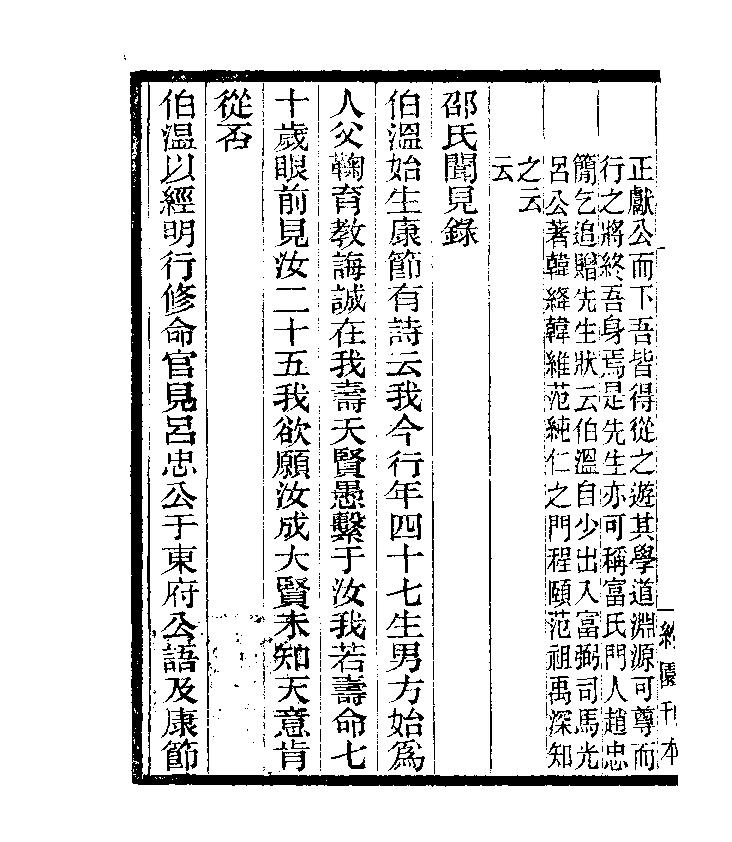 約園刊本
正獻公而下吾皆得從之遊其學道淵源可尊而
行之將終吾身焉是先生亦可稱富氏門人趙忠
簡乞追贈先生狀云伯溫自少出入富弼司馬光
呂公著韓絳韓維范純仁之門程頤范祖禹深知
之云
云
邵氏聞見錄
伯溫始生康節有詩云我今行年四十七生男方始爲
人父鞠育教誨誠在我壽夭賢愚繫于汝我若壽命七
十歲眼前見汝二十五我欲願汝成大賢未知天意肯
從否
伯溫以經明行修命官見呂忠公于東府公語及康節